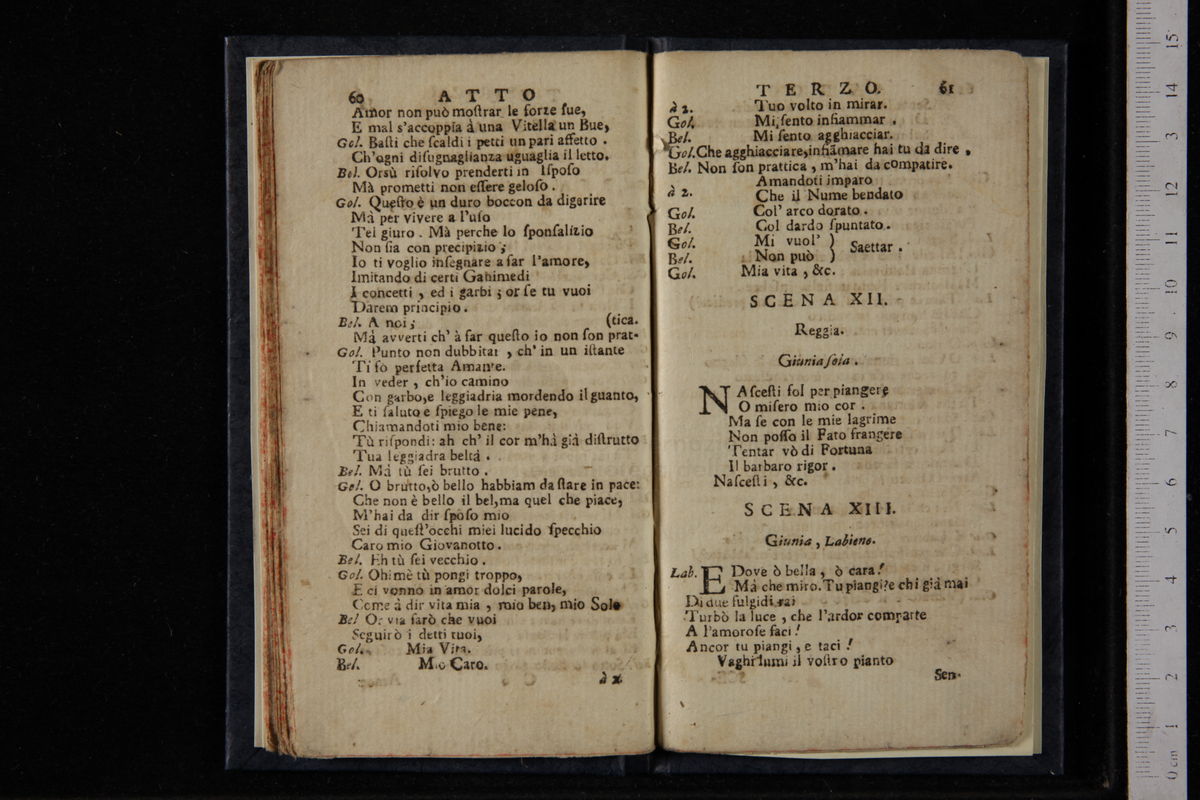 60 ATTO
Amor non può moſtrar le forze ſue,
E mal s'accoppia à una Vitella un Bue,
Gol. Baſti che ſcaldi i petti un pari affetto .
Ch'ogni diſugnaglianza uguaglia il letto.
Bel. Orsù riſolvo prenderti in Iſpoſo
Mà prometti non eſſere geloſo .
Gol. Queſto è un duro boccon da digerire
Mà per vivere a l'uſo
Tei giuro . Mà perche lo ſponſalizio
Non ſia con precipizio ;
Io ti voglio inſegnare a far l'amore,
Imitando di certi Ganimedi
I concetti , ed i garbi ; or ſe tu vuoi
Darem principio .
Bel. A noi ; (tica.
Mà avverti ch' à far queſto io non ſon prat-
Gol. Punto non dubbitar , ch' in un iſtante
Ti fò perfetta Amante.
In veder , ch'io camino
Con garbo,e leggiadria mordendo il guanto,
E ti ſaluto e ſpiego le mie pene,
Chiamandoti mio bene:
Tù riſpondi: ah ch' il cor m'hà già diſtrutto
Tua leggiadra beltà .
Bel. Mà tù ſei brutto .
Gol. O brutto,ò bello habbiam da ſtare in pace:
Che non è bello il bel,ma quel che piace,
M'hai da dir ſpoſo mio
Sei di queſt'occhi miei lucido ſpecchio
Caro mio Giovanotto .
Bel. Eh tù ſei vecchio .
Gol. Ohimè tù pongi troppo,
E ci vonno in amor dolci parole,
Come à dir vita mia , mio ben, mio Sole
Bel Or via farò che vuoi
Seguirò i detti tuoi,
Gol. Mia Vita.
Bel. Mio Caro.
à 2.
TERZO. 61
à 2. Tuo volto in mirar.
Gol. Mi ſento infiammar .
Bel. Mi ſento agghiacciar.
Gol.Che agghiacciare,infiãmare hai tu da dire .
Bel. Non ſon prattica , m'hai da compatire.
Amandoti imparo
à 2. Che il Nume bendato
Gol. Col' arco dorato .
Bel. Col dardo ſpuntato .
Gol. Mi vuol' )
Bel. Non può ) Saettar .
Gol. Mia vita , &c.
SCENA XII.
Reggia.
Giunia ſola .
NAſceſti ſol per piangere
O miſero mio cor .
Ma ſe con le mie lagrime
Non poſſo il Fato frangere
Tentar vò di Fortuna
Il barbaro rigor .
Naſceſti , &c.
SCENA XIII.
Giunia , Labieno.
Lab. E Dove ò bella , ò cara !
Mà che miro. Tu piangi?e chi già mai
Di due fulgidi rai
Turbò la luce , che l'ardor comparte
A l'amoroſe faci !
Ancor tu piangi , e taci !
Vaghi lumi il voſtro pianto
Sen-
0 cm 1 2 3 4 5 6 7 8 9 10 11 12 13 14 15